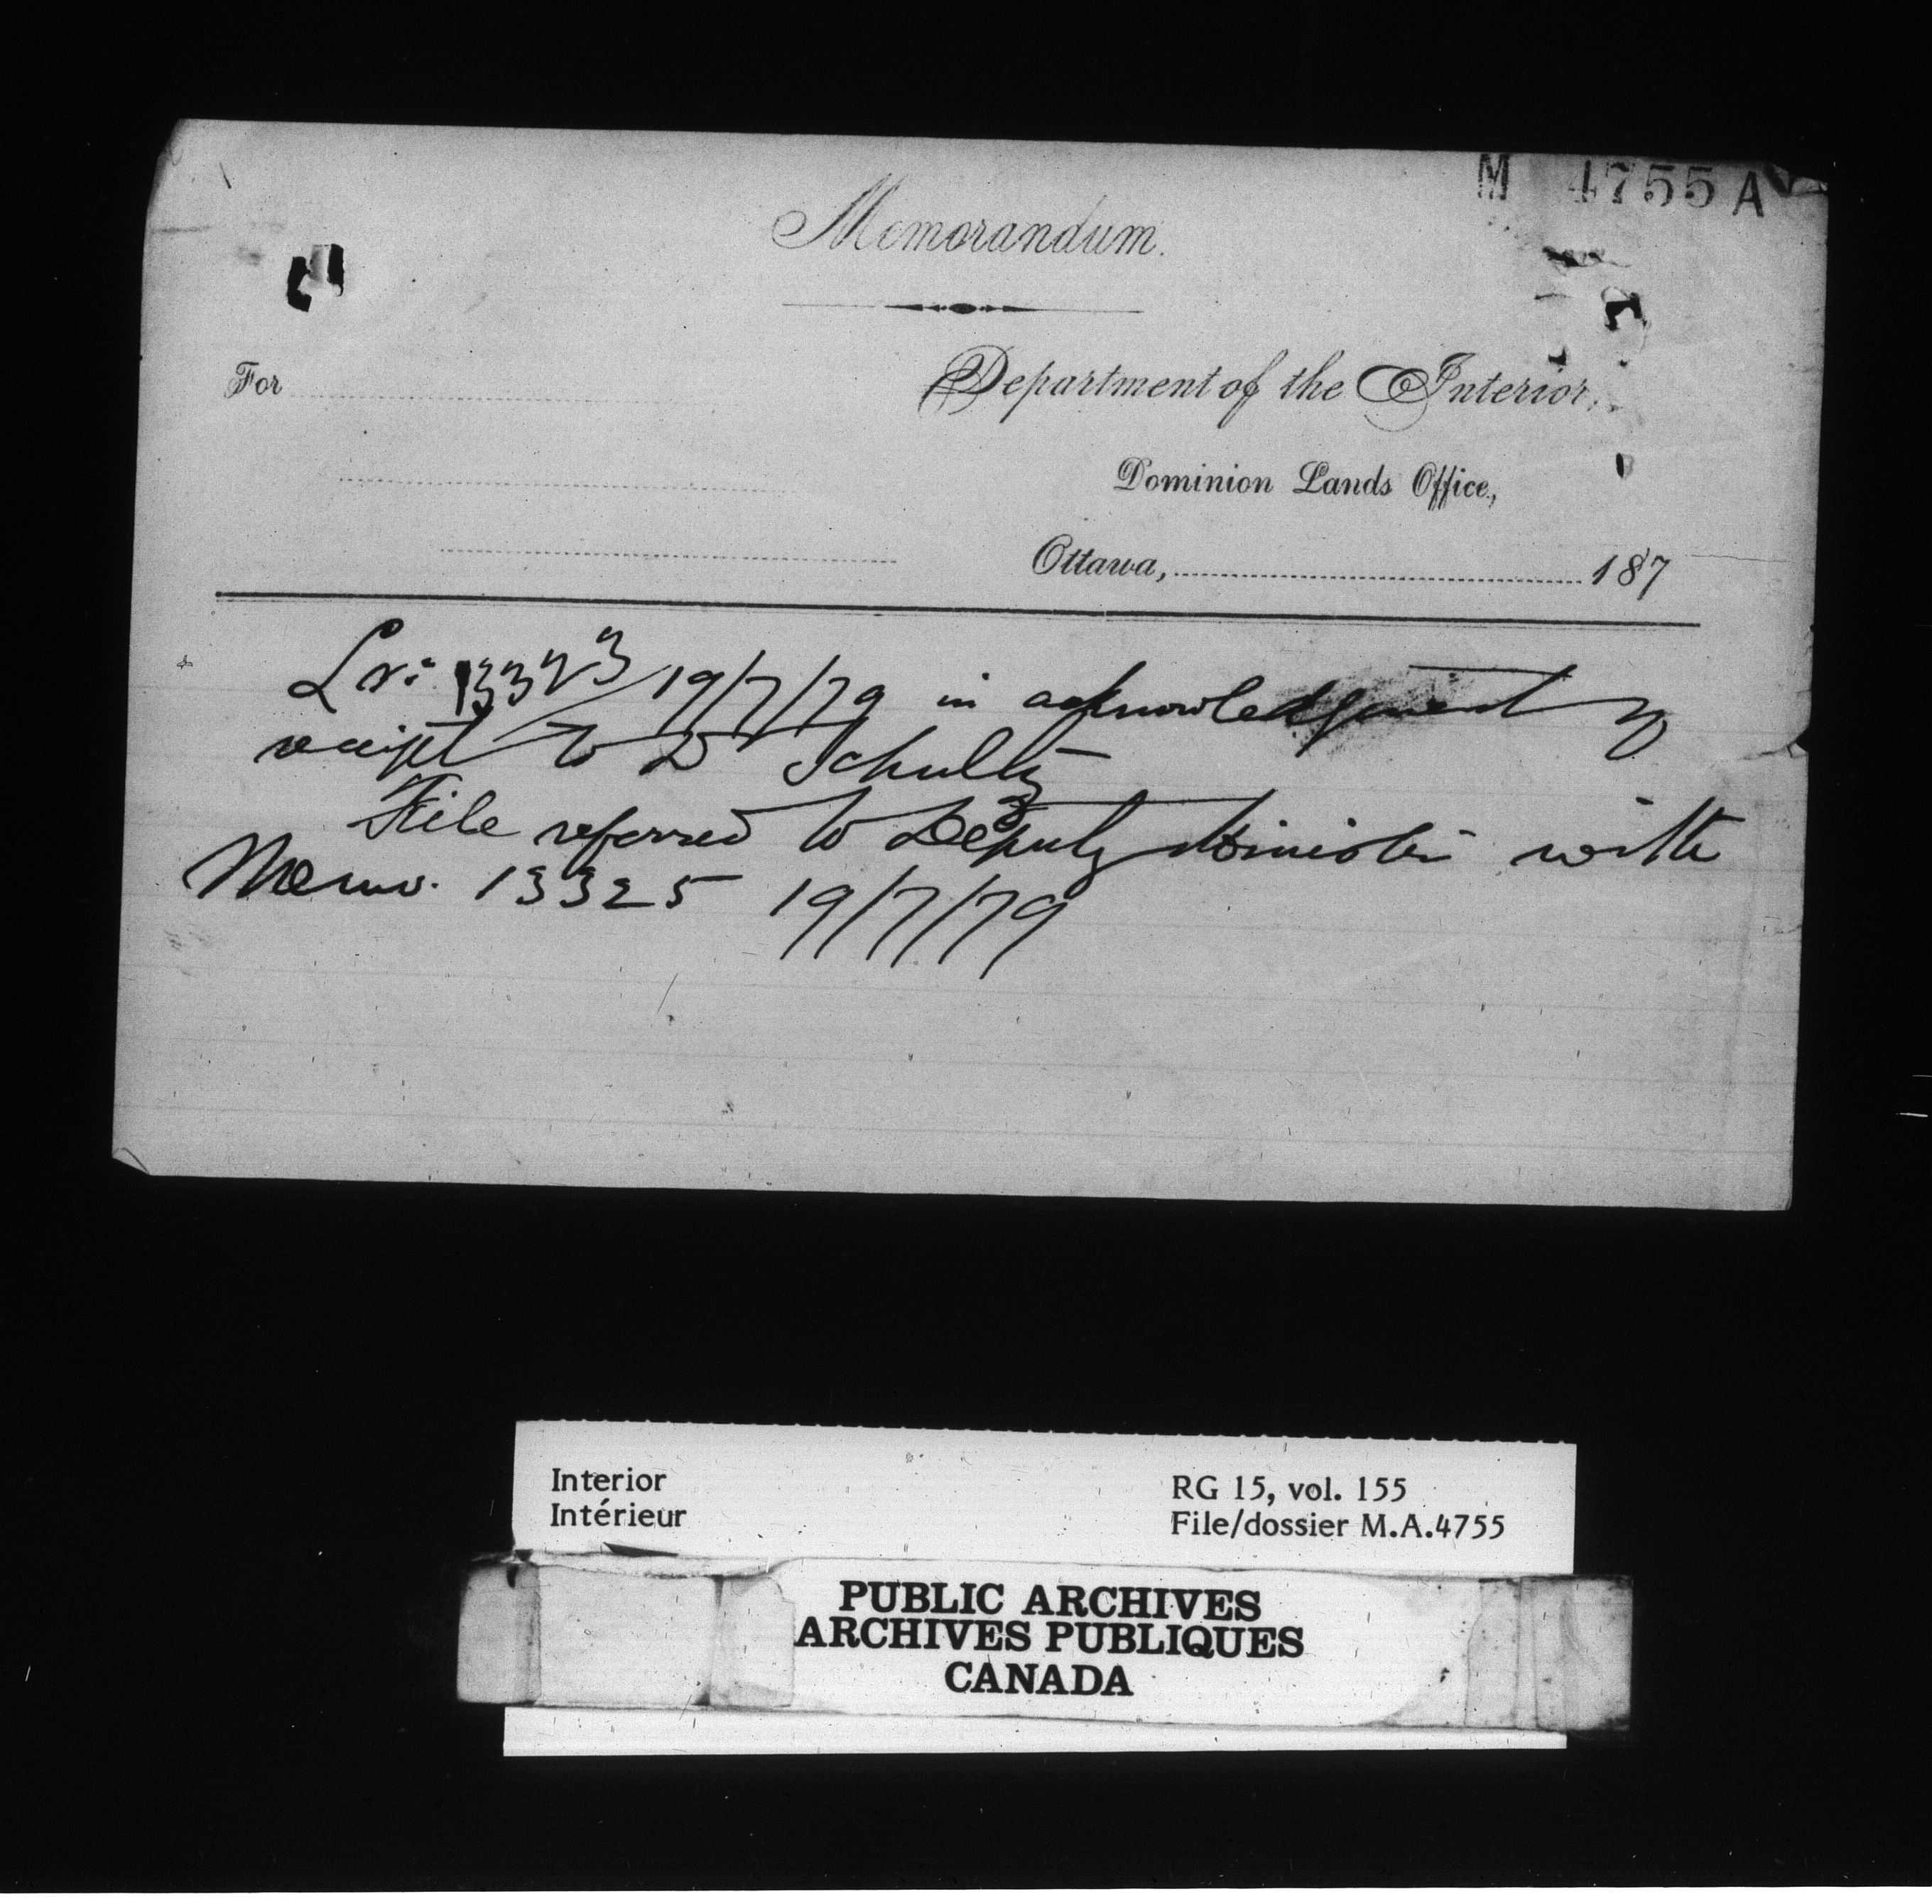 M 4755 A
Memorandum.
For
Department of the Interior,
Dominion Lands Office,
Ottawa, 187
Lr: 13323 19/7/79 in acknowledgment of
receipt to Dr Schultz
File referred to Deputy Minister with
Memo. 13325 19/7/79
Interior
Intérieur
RG 15, vol. 155
File/dossier M.A.4755
PUBLIC ARCHIVES
ARCHIVES PUBLIQUES
CANADA